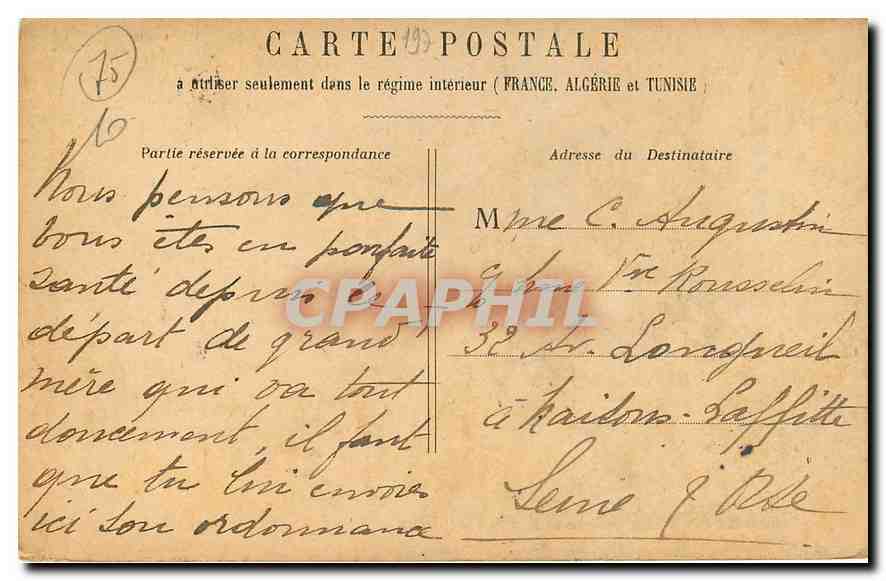 75
197
CARTE POSTALE
à utiliser seulement dans le régime intérieur ( FRANCE, ALGÉRIE et TUNISIE )
Partie réservée à la correspondance
Nous pensons que
vous êtes en parfaite
santé depuis le
départ de grand'
mère qui va tout
doucement, il faut
que tu lui envoies
ici son ordonnance
Adresse du Destinataire
Mme C. Augustin
c/o Mme Vve Rousselin
32 Av. Longueil
à Maisons-Laffitte
Seine & Oise
CPAPHIL